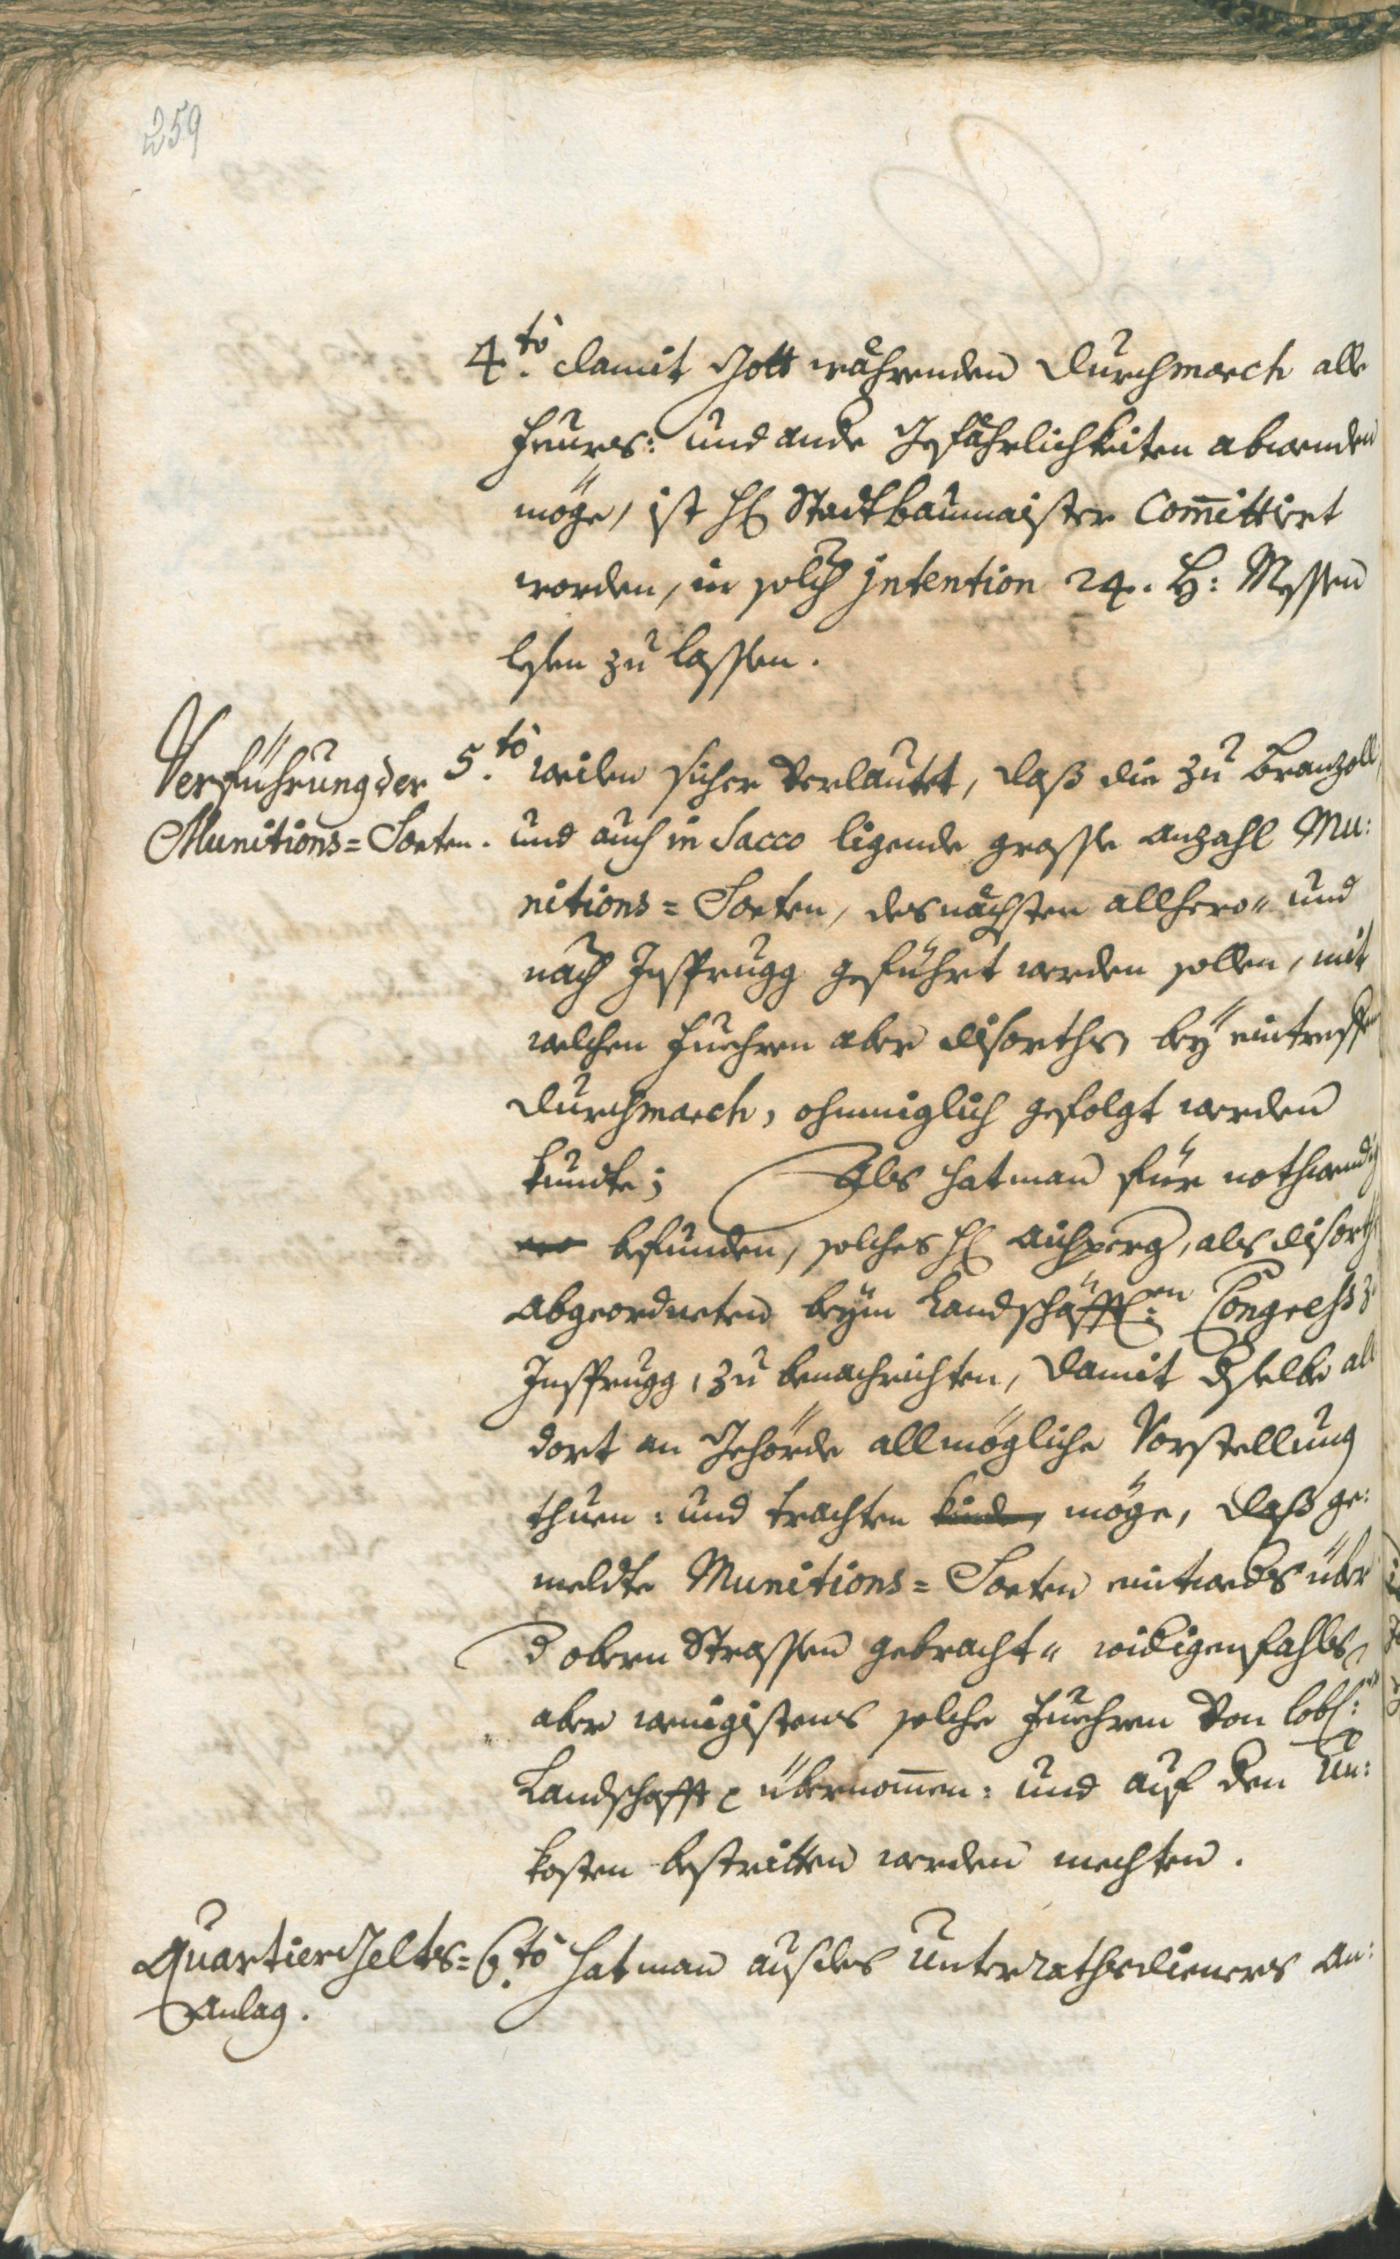 259
4.to damit Gott währenden Durchmarch alle
feuers: und ande Gefährlichkeiten abwenden
möge, ist H: Stattbaumaister Com̅ittirt
worden, in solch jntention 24. H: Messen
lesen zu lassen.
Verführung der
Munitions=Sorten.
5.to weilen sicher verlautet, daß die zu Branzoll,
und auch in Sacco ligende grosse anzahl Mu:
nitions=Sorten, des nächsten allhero- und
nach Insprugg geführt werden sollen, mit
welchen fuehren aber disorths bey eintreffen
Durchmarch, ohnmiglich gefolgt werden
kundte; Als hat man für nothwendig
befunden, solches H: , als disorths
abgeordneten beym Landschäfftl:en Congress zu
Insprugg, zu benachrichten, damit dselbe all
dort an Gehörde allmögliche Vorstellung
thuen: und trachten möge, daß ge:
meldte Munitions=Sorten eintweds über
d obern Strassen gebracht- widrigenfahls
aber wenigistens solche fuehren von lobl:en
Landschafft übernom̅en: und auf den Un:
kosten bestritten werden mechten.
Quartier Gelts=
Anlag.
6.to hat man auf des Unterrathsdieners an: